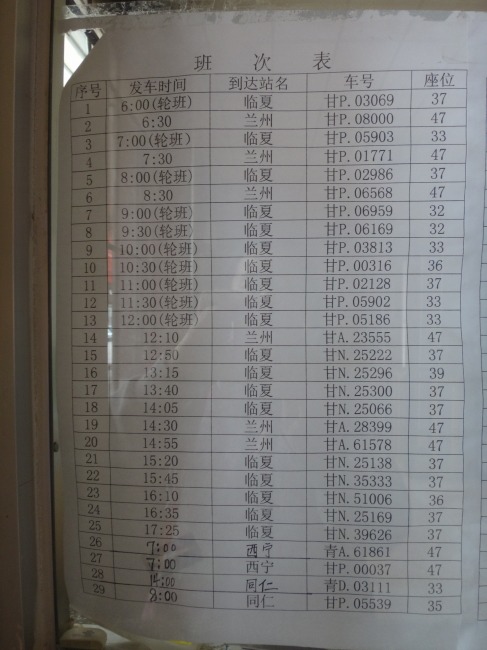 班 次 表
序号 发车时间 到达站名 车号 座位
1 6:00(轮班) 临夏 甘P.03069 37
2 6:30 兰州 甘P.08000 47
3 7:00(轮班) 临夏 甘P.05903 33
4 7:30 兰州 甘P.01771 47
5 8:00(轮班) 临夏 甘P.02986 37
6 8:30 兰州 甘P.06568 47
7 9:00(轮班) 临夏 甘P.06959 32
8 9:30(轮班) 临夏 甘P.06169 32
9 10:00(轮班) 临夏 甘P.03813 33
10 10:30(轮班) 临夏 甘P.00316 36
11 11:00(轮班) 临夏 甘P.02128 37
12 11:30(轮班) 临夏 甘P.05902 33
13 12:00(轮班) 临夏 甘P.05186 33
14 12:10 兰州 甘A.23555 47
15 12:50 临夏 甘N.25222 37
16 13:15 临夏 甘N.25296 39
17 13:40 临夏 甘N.25300 37
18 14:05 临夏 甘N.25066 37
19 14:30 兰州 甘A.28399 47
20 14:55 兰州 甘A.61578 47
21 15:20 临夏 甘N.25138 37
22 15:45 临夏 甘N.35333 37
23 16:10 临夏 甘N.51006 36
24 16:35 临夏 甘N.25169 37
25 17:25 临夏 甘N.39626 37
26 7:00 西宁 青A.61861 47
27 7:00 西宁 甘P.00037 47
28 14:00 同仁 青D.03111 33
29 8:00 同仁 甘P.05539 35